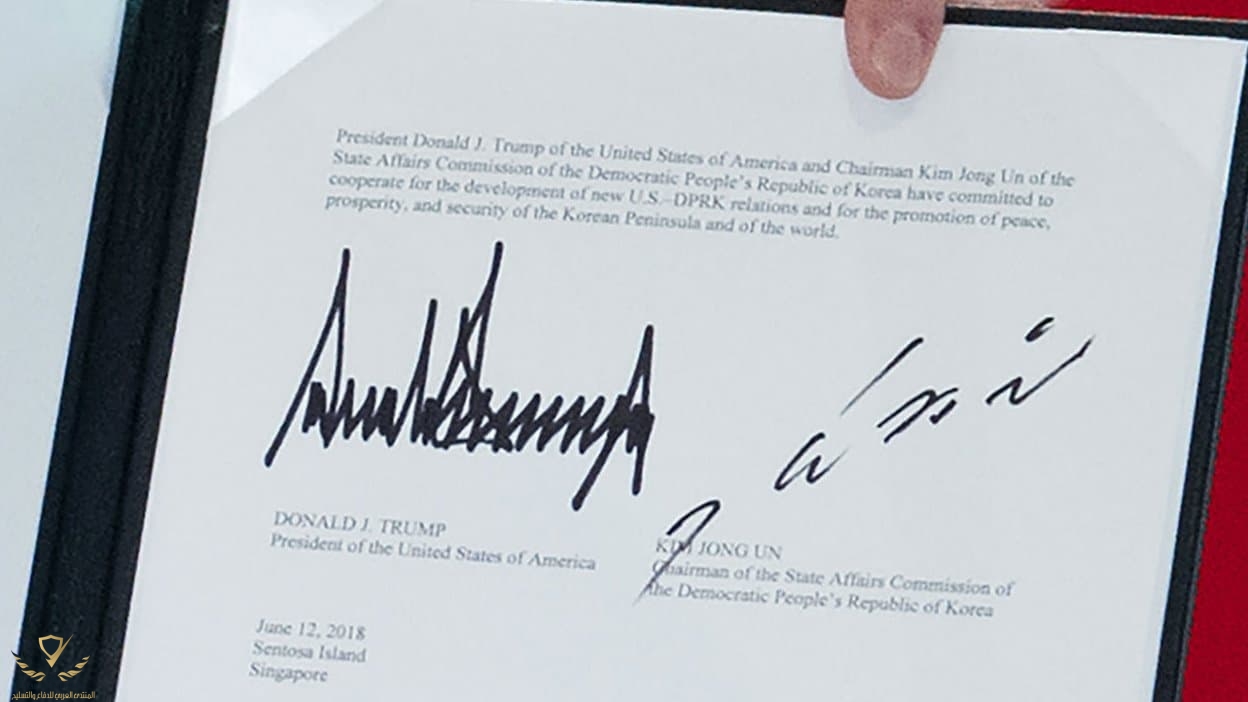 President Donald J. Trump of the United States of America and Chairman Kim Jong Un of the
State Affairs Commission of the Democratic People's Republic of Korea have committed to
cooperate for the development of new U.S.–DPRK relations and for the promotion of peace,
prosperity, and security of the Korean Peninsula and of the world.
DONALD J. TRUMP
President of the United States of America
KIM JONG UN
Chairman of the State Affairs Commission of
the Democratic People's Republic of Korea
June 12, 2018
Sentosa Island
Singapore
المنتدى العربي للدفاع والتسليح